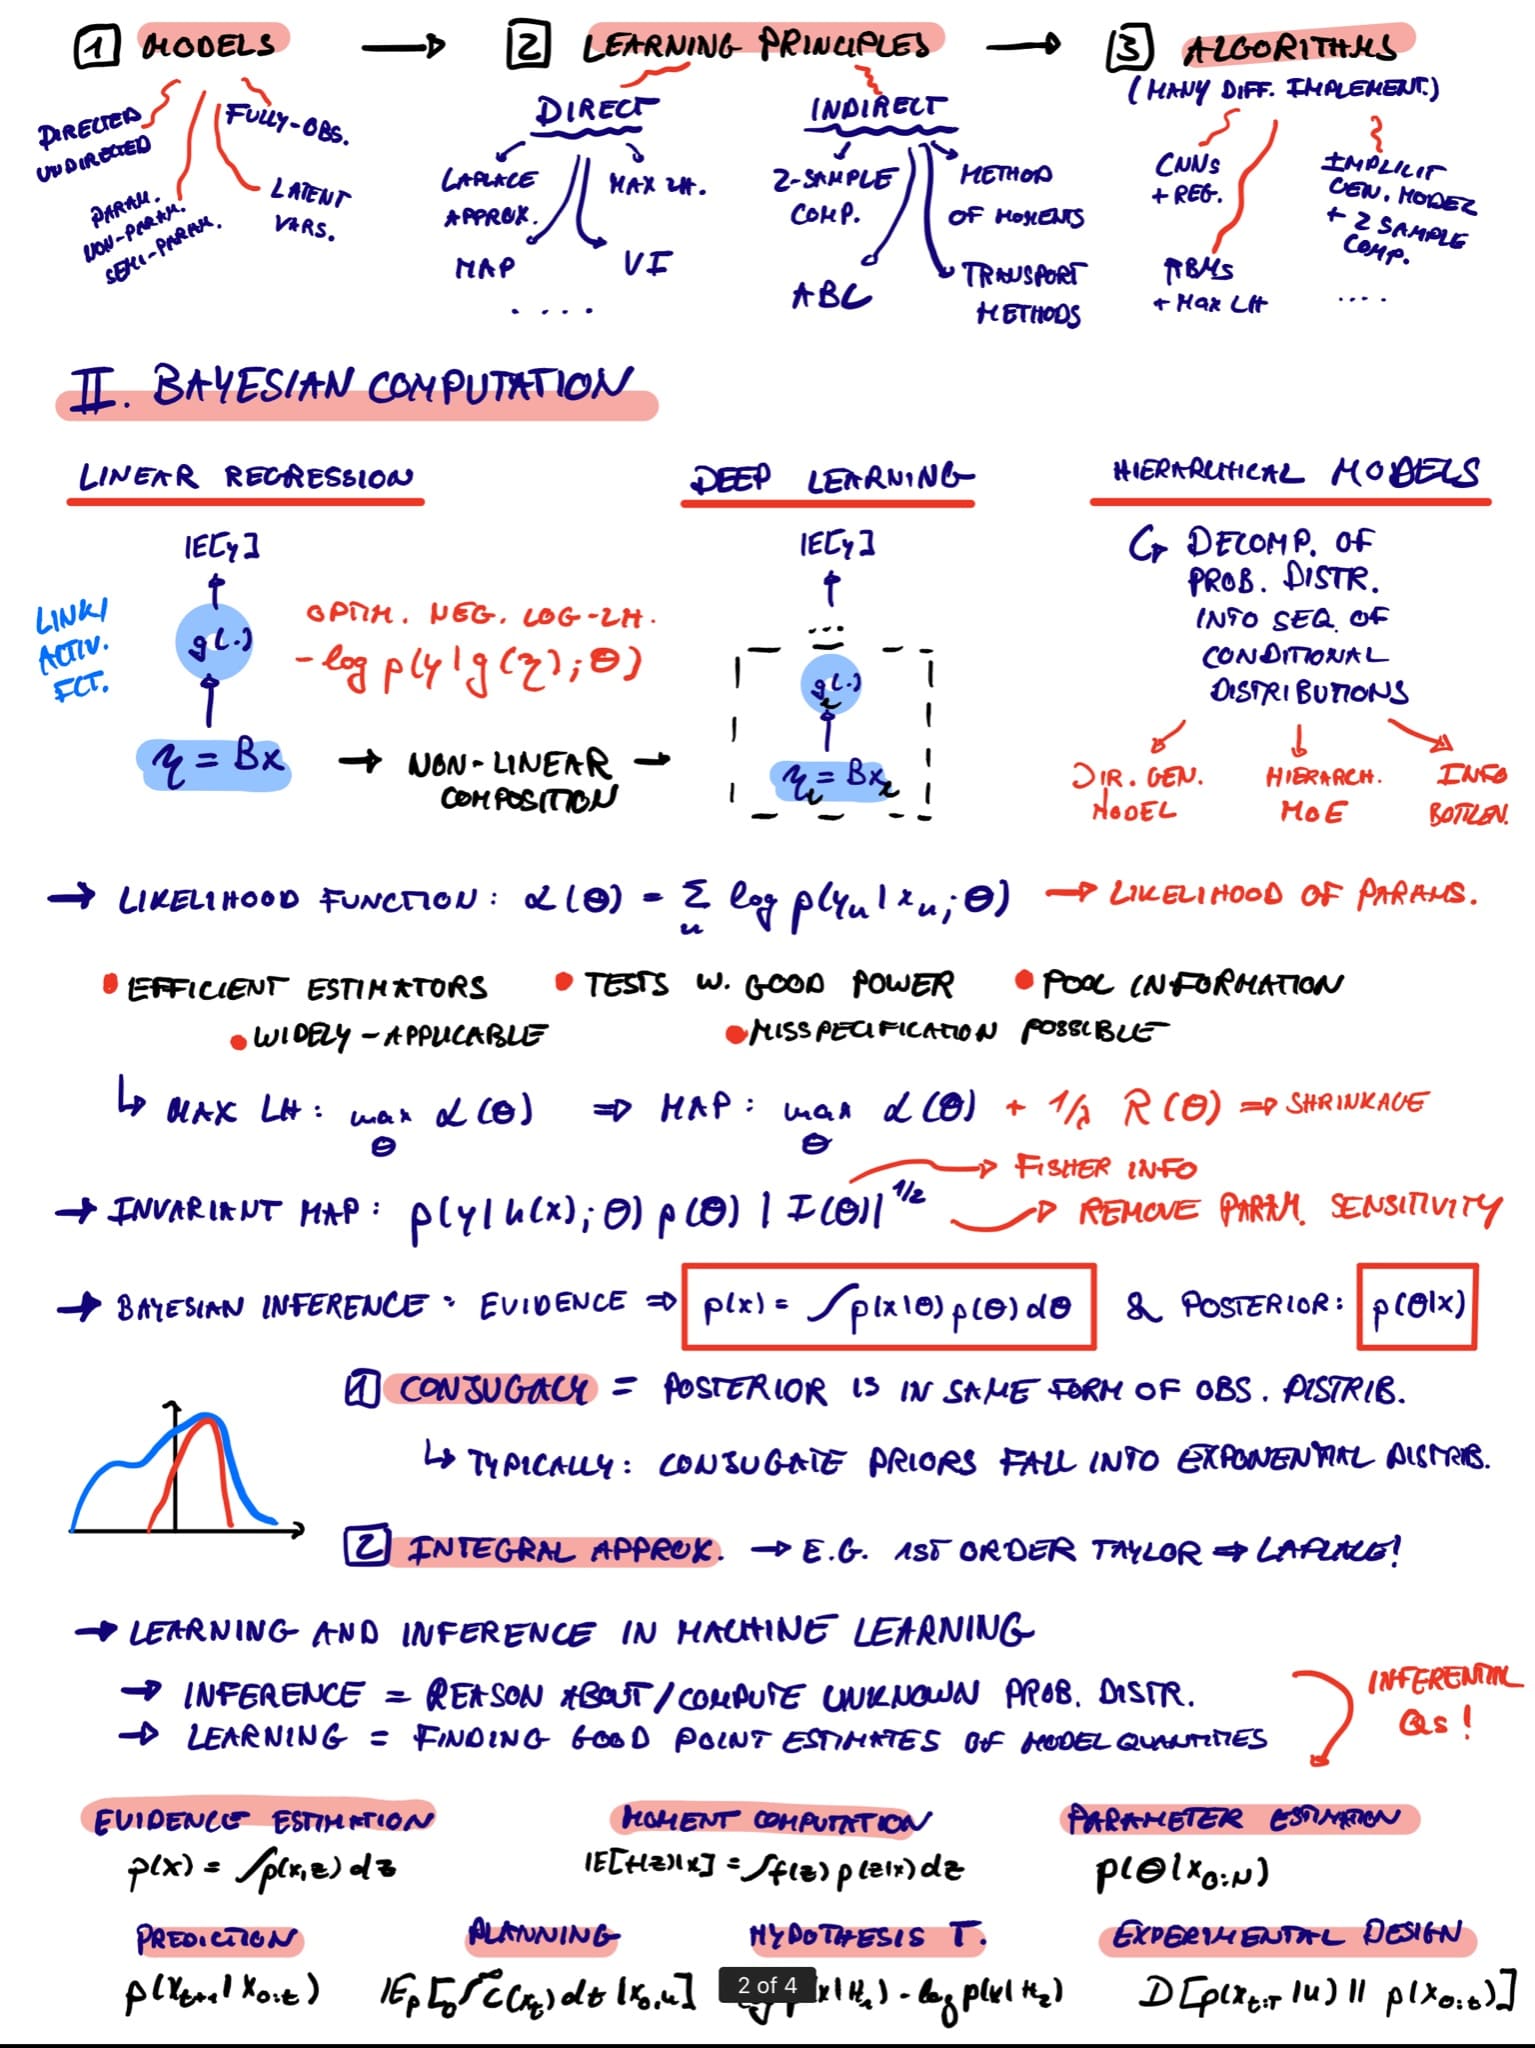 1 MODELS → 2 LEARNING PRINCIPLES → 3 ALGORITHMS
(MANY DIFF. IMPLEMENT.)
DIRECTED
UNDIRECTED
PARAM.
NON-PARAM.
SEMI-PARAM.
FULLY-OBS.
LATENT
VARS.
DIRECT
LAPLACE
APPROX.
MAP
MAX LH.
VI
....
INDIRECT
2-SAMPLE
COMP.
ABC
METHOD
OF MOMENTS
TRANSPORT
METHODS
CNNS
+ REG.
RBMS
+ MAX LH
IMPLICIT
GEN. MODEL
+ 2 SAMPLE
COMP.
....
II. BAYESIAN COMPUTATION
LINEAR REGRESSION
DEEP LEARNING
HIERARCHICAL MODELS
E[y]
LINK/
ACTIV.
FCT.
g(.)
η = Bx
OPTIM. NEG. LOG-LH.
-log p(y|g(η); θ)
→ NON-LINEAR →
COMPOSITION
E[y]
...
g(.)
η = Bx
↳ DECOMP. OF
PROB. DISTR.
INTO SEQ. OF
CONDITIONAL
DISTRIBUTIONS
DIR. GEN.
MODEL
HIERARCH.
MOE
INFO
BOTTLEN.
→ LIKELIHOOD FUNCTION: L(θ) = Σ_n log p(y_n|x_n; θ) → LIKELIHOOD OF PARAMS.
• EFFICIENT ESTIMATORS • TESTS W. GOOD POWER • POOL INFORMATION
• WIDELY-APPLICABLE • MISSPECIFICATION POSSIBLE
↳ MAX LH: max_θ L(θ) ⇒ MAP: max_θ L(θ) + 1/λ R(θ) ⇒ SHRINKAGE
→ FISHER INFO
→ INVARIANT MAP: p(y|h(x); θ) p(θ) |I(θ)|^1/2 → REMOVE PARAM. SENSITIVITY
→ BAYESIAN INFERENCE: EVIDENCE ⇒ p(x) = ∫p(x|θ) p(θ) dθ & POSTERIOR: p(θ|x)
1 CONJUGACY = POSTERIOR IS IN SAME FORM OF OBS. DISTRIB.
↳ TYPICALLY: CONJUGATE PRIORS FALL INTO EXPONENTIAL DISTRIB.
2 INTEGRAL APPROX. → E.G. 1ST ORDER TAYLOR ⇒ LAPLACE!
→ LEARNING AND INFERENCE IN MACHINE LEARNING
→ INFERENCE = REASON ABOUT/COMPUTE UNKNOWN PROB. DISTR.
→ LEARNING = FINDING GOOD POINT ESTIMATES OF MODEL QUANTITIES
INFERENTIAL
Qs!
EVIDENCE ESTIMATION
p(x) = ∫p(x,z) dz
MOMENT COMPUTATION
E[f(z)|x] = ∫f(z) p(z|x) dz
PARAMETER ESTIMATION
p(θ|x_0:N)
PREDICTION
p(x_t+1|x_0:t)
PLANNING
E_p[∫_0^∞ C(x_t) dt|x_0,u]
HYPOTHESIS T.
p(x|H_1) - log p(x|H_2)
EXPERIMENTAL DESIGN
D[p(x_t:T|u) || p(x_0:t)]
2 of 4